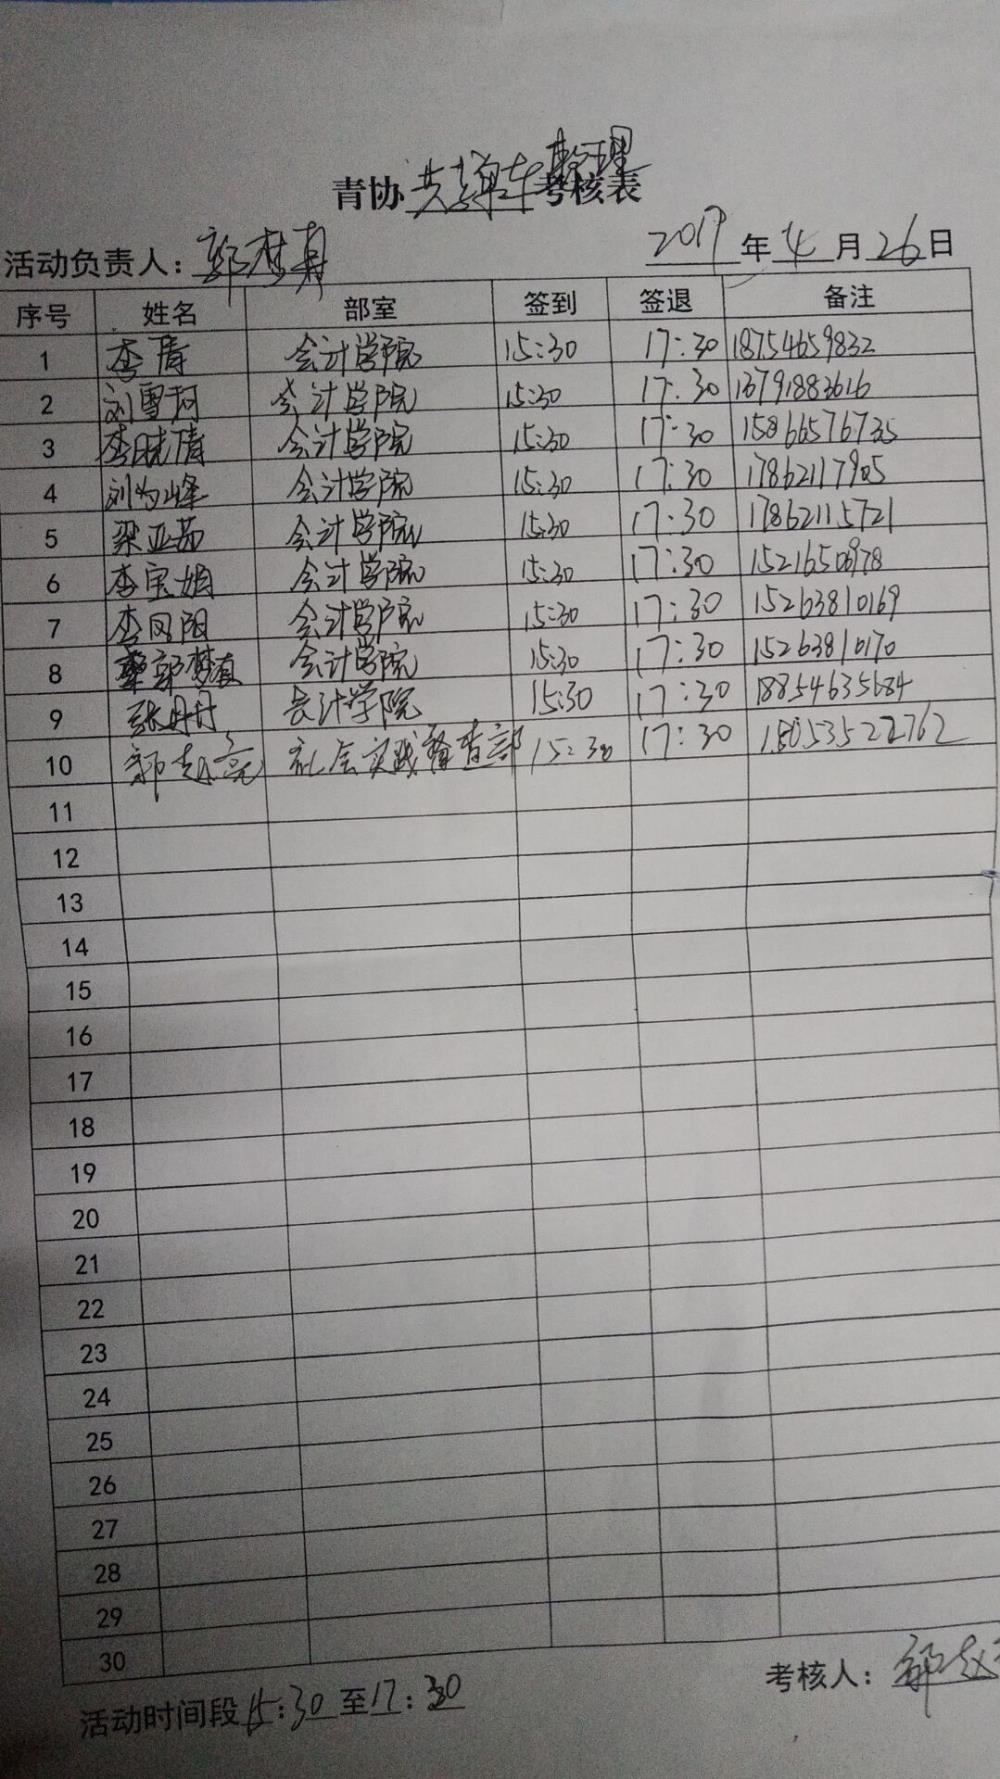 青协 共享单车整理 考核表
活动负责人：郭梦真 2017 年 4 月 26 日
序号 姓名 部室 签到 签退 备注
1 李倩 会计学院 15:30 17:30 18754659832
2 刘雪珂 会计学院 15:30 17:30 13791883616
3 李晓倩 会计学院 15:30 17:30 15866576735
4 刘为峰 会计学院 15:30 17:30 17862117905
5 梁亚茹 会计学院 15:30 17:30 17862115721
6 李宝娟 会计学院 15:30 17:30
7 李凤阳 会计学院 15:30 17:30 15263810169
8 郭梦真 会计学院 15:30 17:30 15263810170
9 张丹丹 会计学院 15:30 17:30 18854635684
10 郭赵亮 社会实践督查部 15:30 17:30 18053522762
11
12
13
14
15
16
17
18
19
20
21
22
23
24
25
26
27
28
29
30
考核人：郭赵
活动时间段 15:30 至 17:30